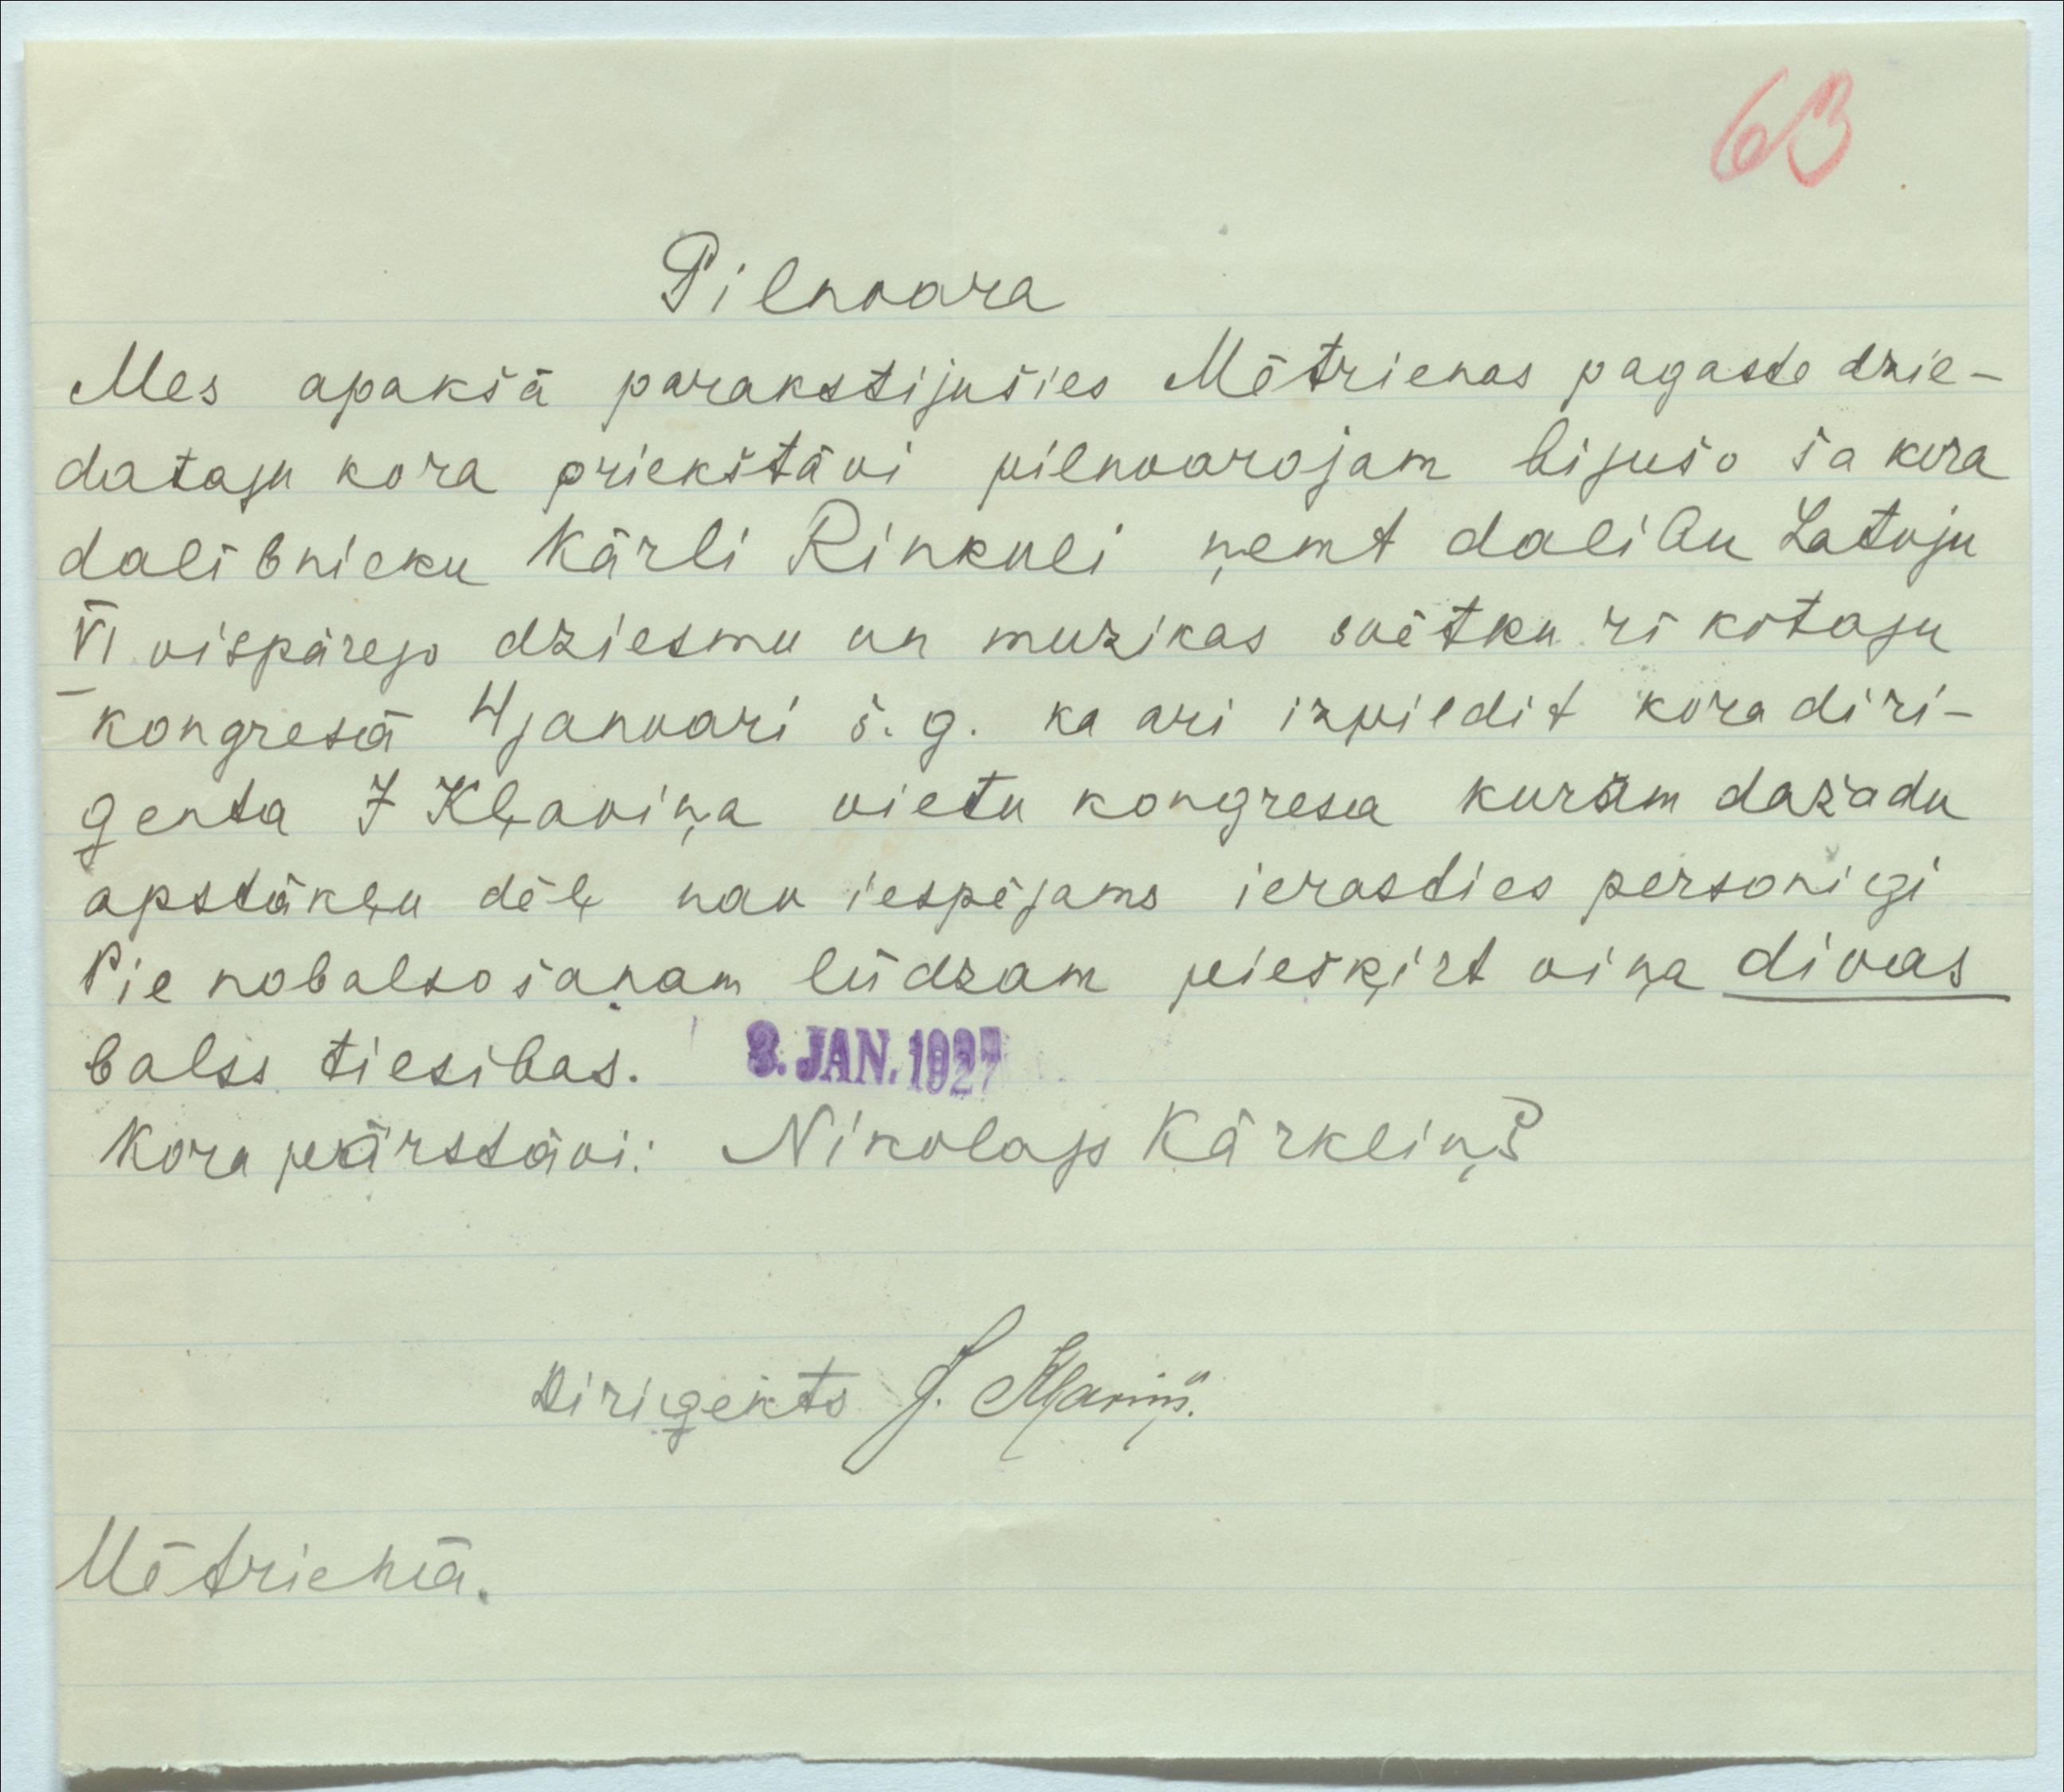 63
Pilnvara
Mes apakšā parakstijušies Mētrienas pagasta dzie-
dataju kora priekštāvi pilnvarojam bijušo ša kora
dalibnieku Kārli Rinkuli ņemt dalibu Latvju
VI vispārejo dziesmu un muzikas svētku rīkotaju
kongresā 4 janvari š. g. ka ari izpildit kora diri-
ģenta J Kļaviņa vietu kongresa kuram dažadu
apstākļu dēļ nav iespējams ierasties personiģi
Pie nobalsošanam lūdzam piešķirt viņa divas
balss tiesibas. 3. JAN. 1927
Kora pārstāvi: Nikolajs Kārkliņš
Diriģents J. Kļaviņš.
Mētrienā.